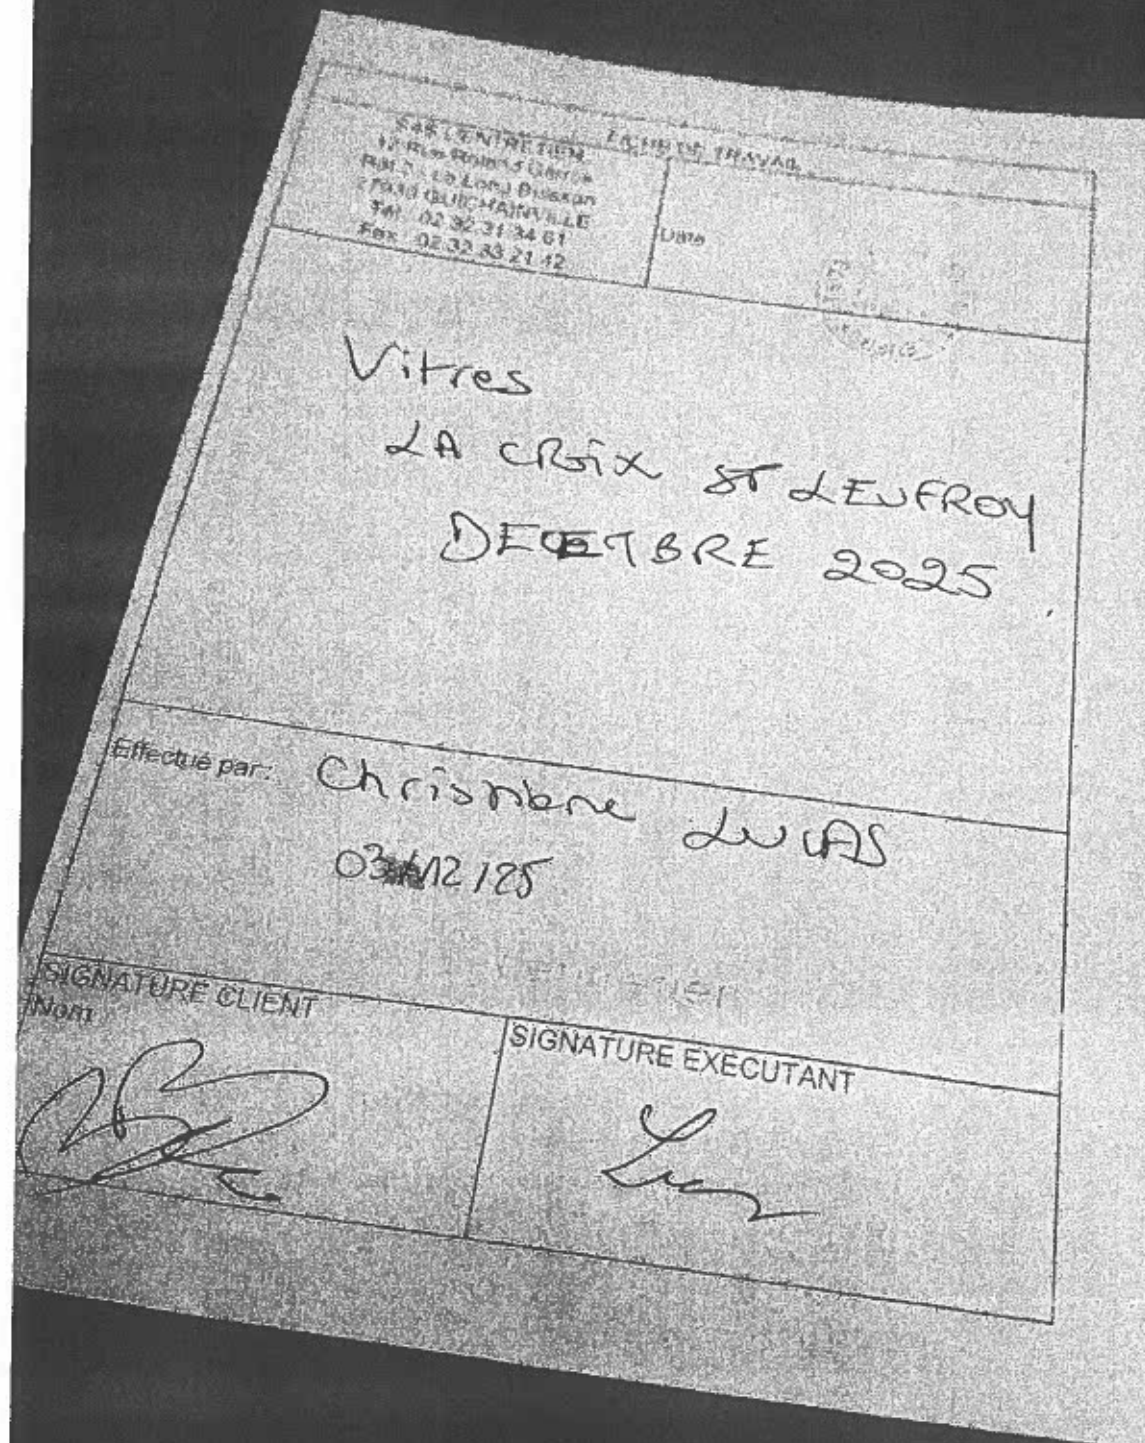 FICHE DE TRAVAIL
SAS L'ENTRETIEN
12 Rue Roland
RN 13 Le Long Buisson
27930 GUICHAINVILLE
Tél : 02 32 31 34 61
Fax : 02 32 33 21 42
Date
Vitres
LA CROIX ST LEUFROY
DECEMBRE 2025
Effectué par :
Christiane LUCAS
03/12/25
SIGNATURE CLIENT
Nom
SIGNATURE EXECUTANT